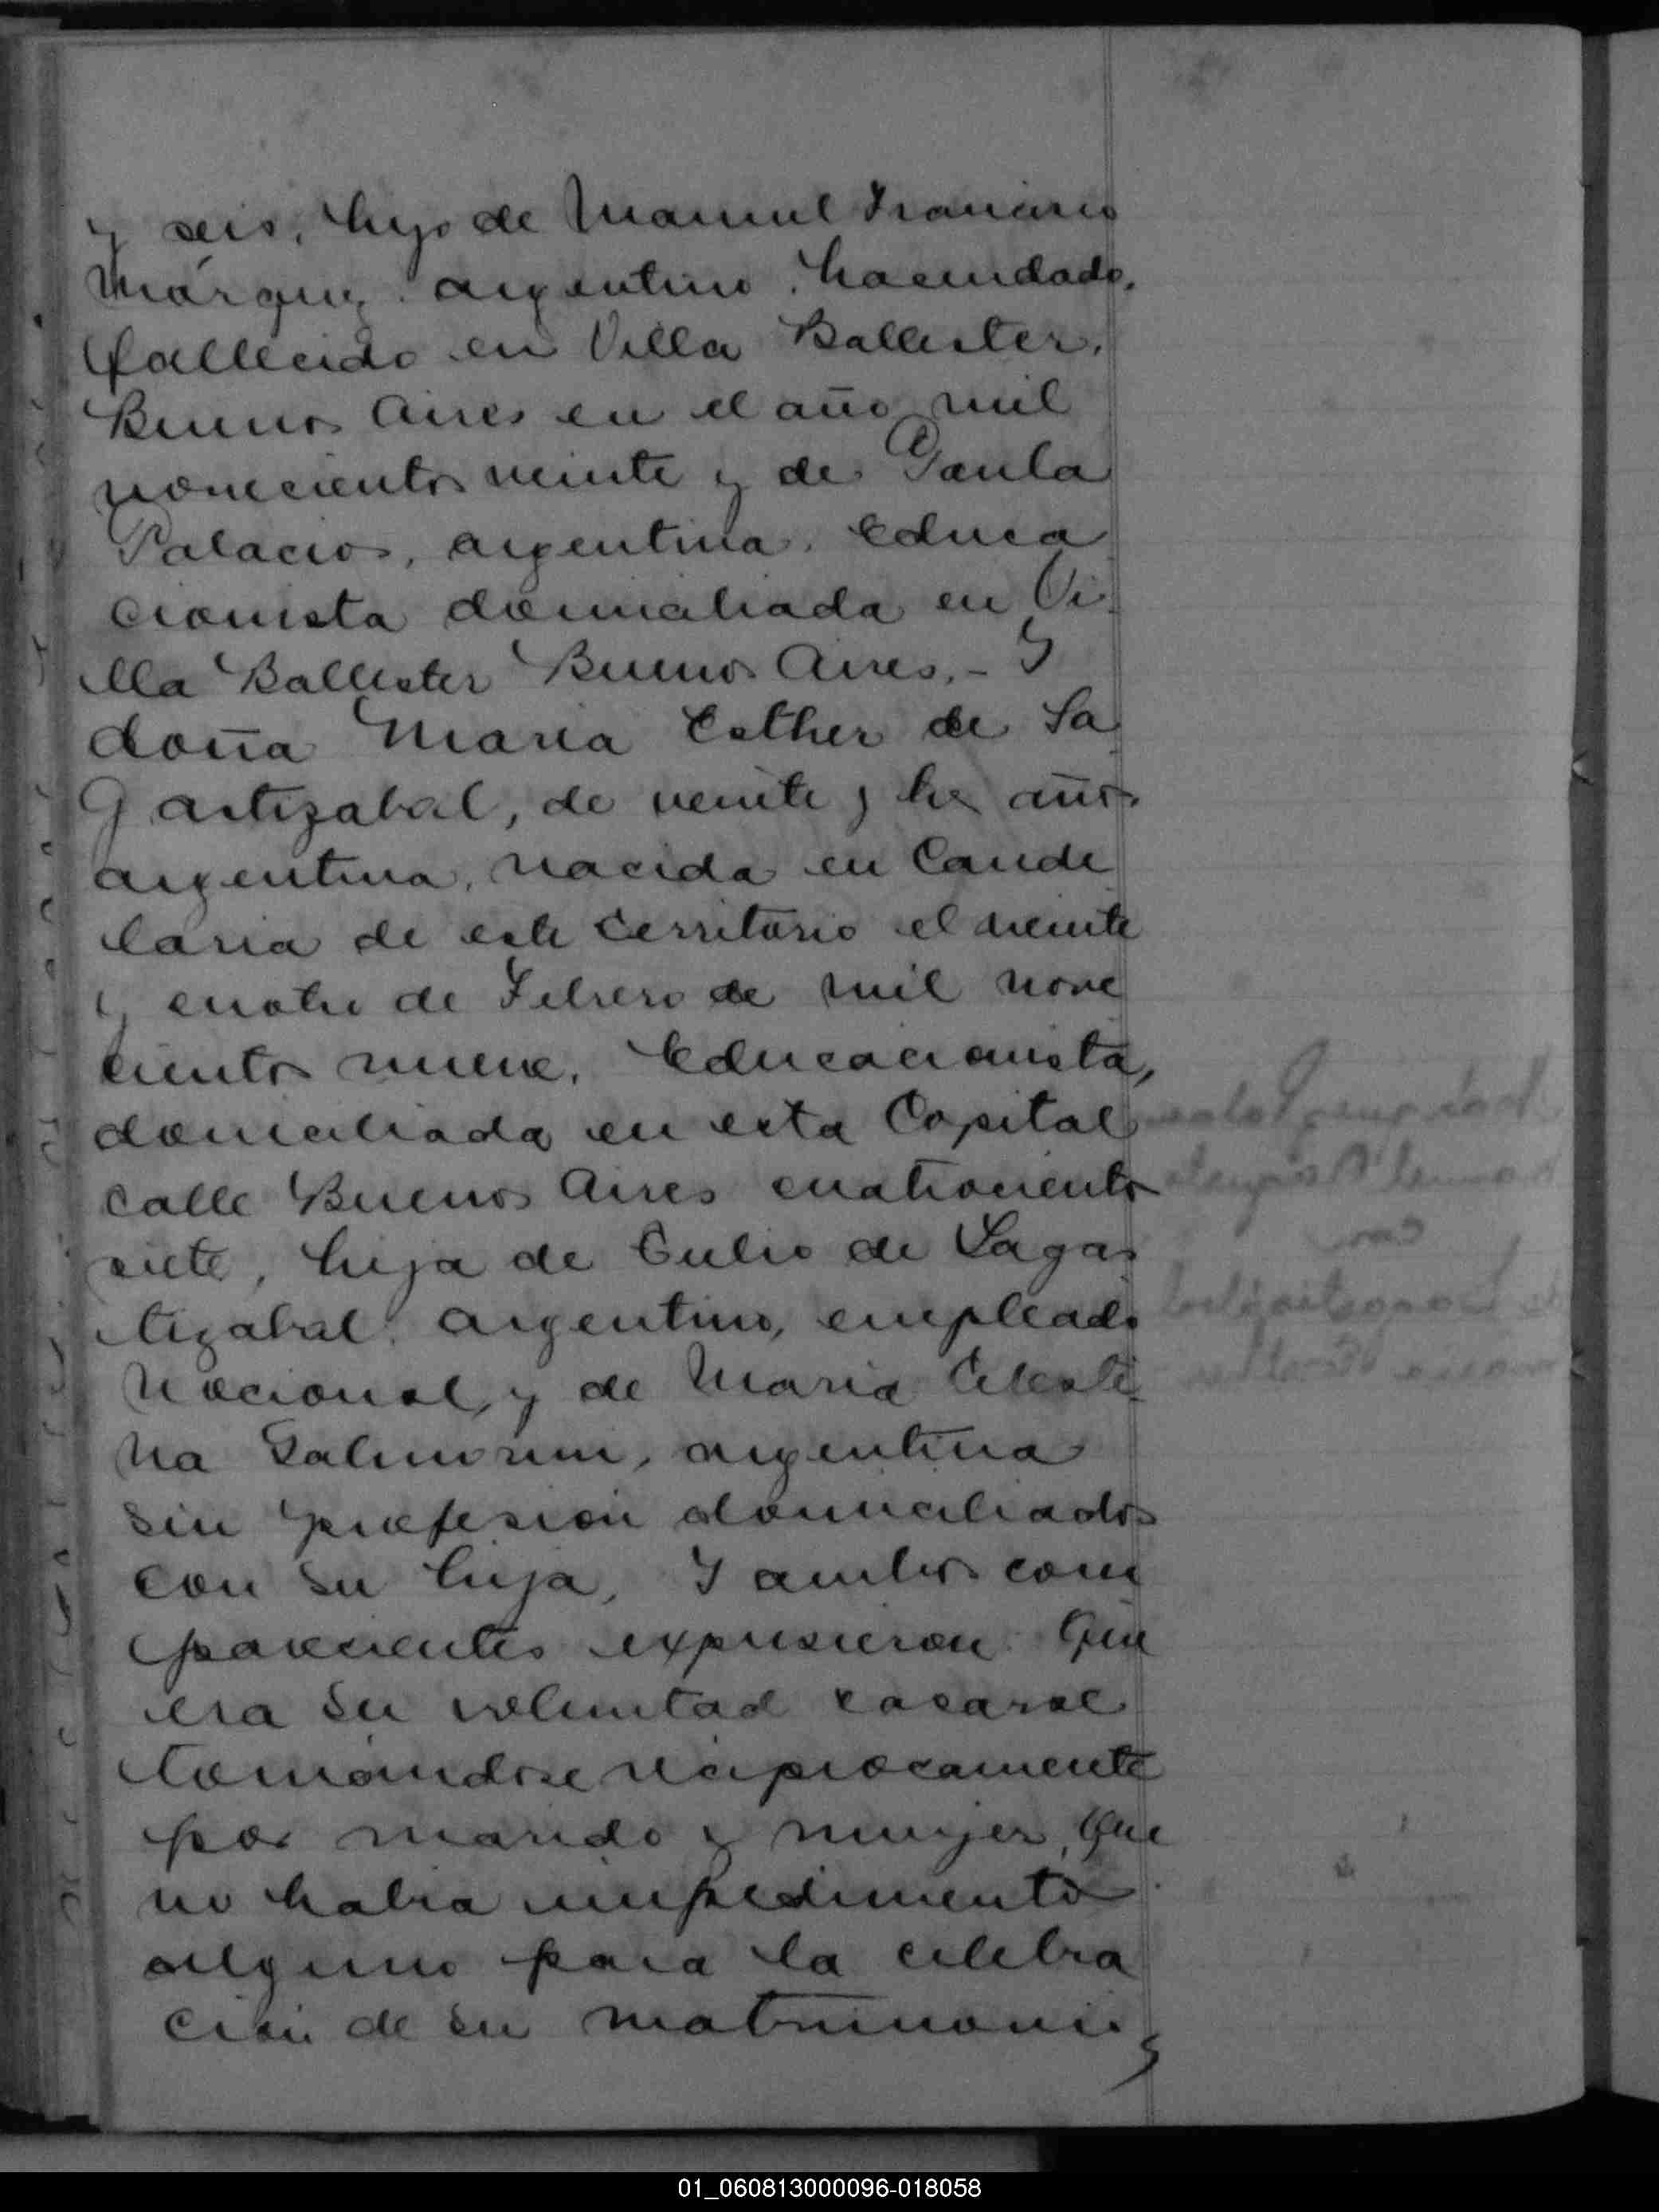 y seis, hijo de Manuel Francisco
Márquez, argentino, hacendado,
fallecido en Villa Ballester,
Buenos Aires en el año mil
novecientos veinte y de Paula
Palacios, argentina, educa
cionista domiciliada en Vi
lla Ballester Buenos Aires.- Y
doña Maria Esther de La
Gastizabal, de veinte y tres años
argentina, nacida en Cande
laria de este territorio el veinte
y cuatro de Febrero de mil nove
cientos nueve, educacionista,
domiciliada en esta Capital
calle Buenos Aires cuatrocientos
siete, hija de Tulio de Lagas
tizabal, argentino, empleado
Nacional, y de Maria Celesti
na, argentina
sin profesión domiciliados
con su hija, Y ambos com
parecientes expusieron: Que
era su voluntad casarse
tomándose reciprocamente
por marido y mujer, Que
no habia impedimento
alguno para la celebra
ción de su matrimonio,
01_060813000096-018058